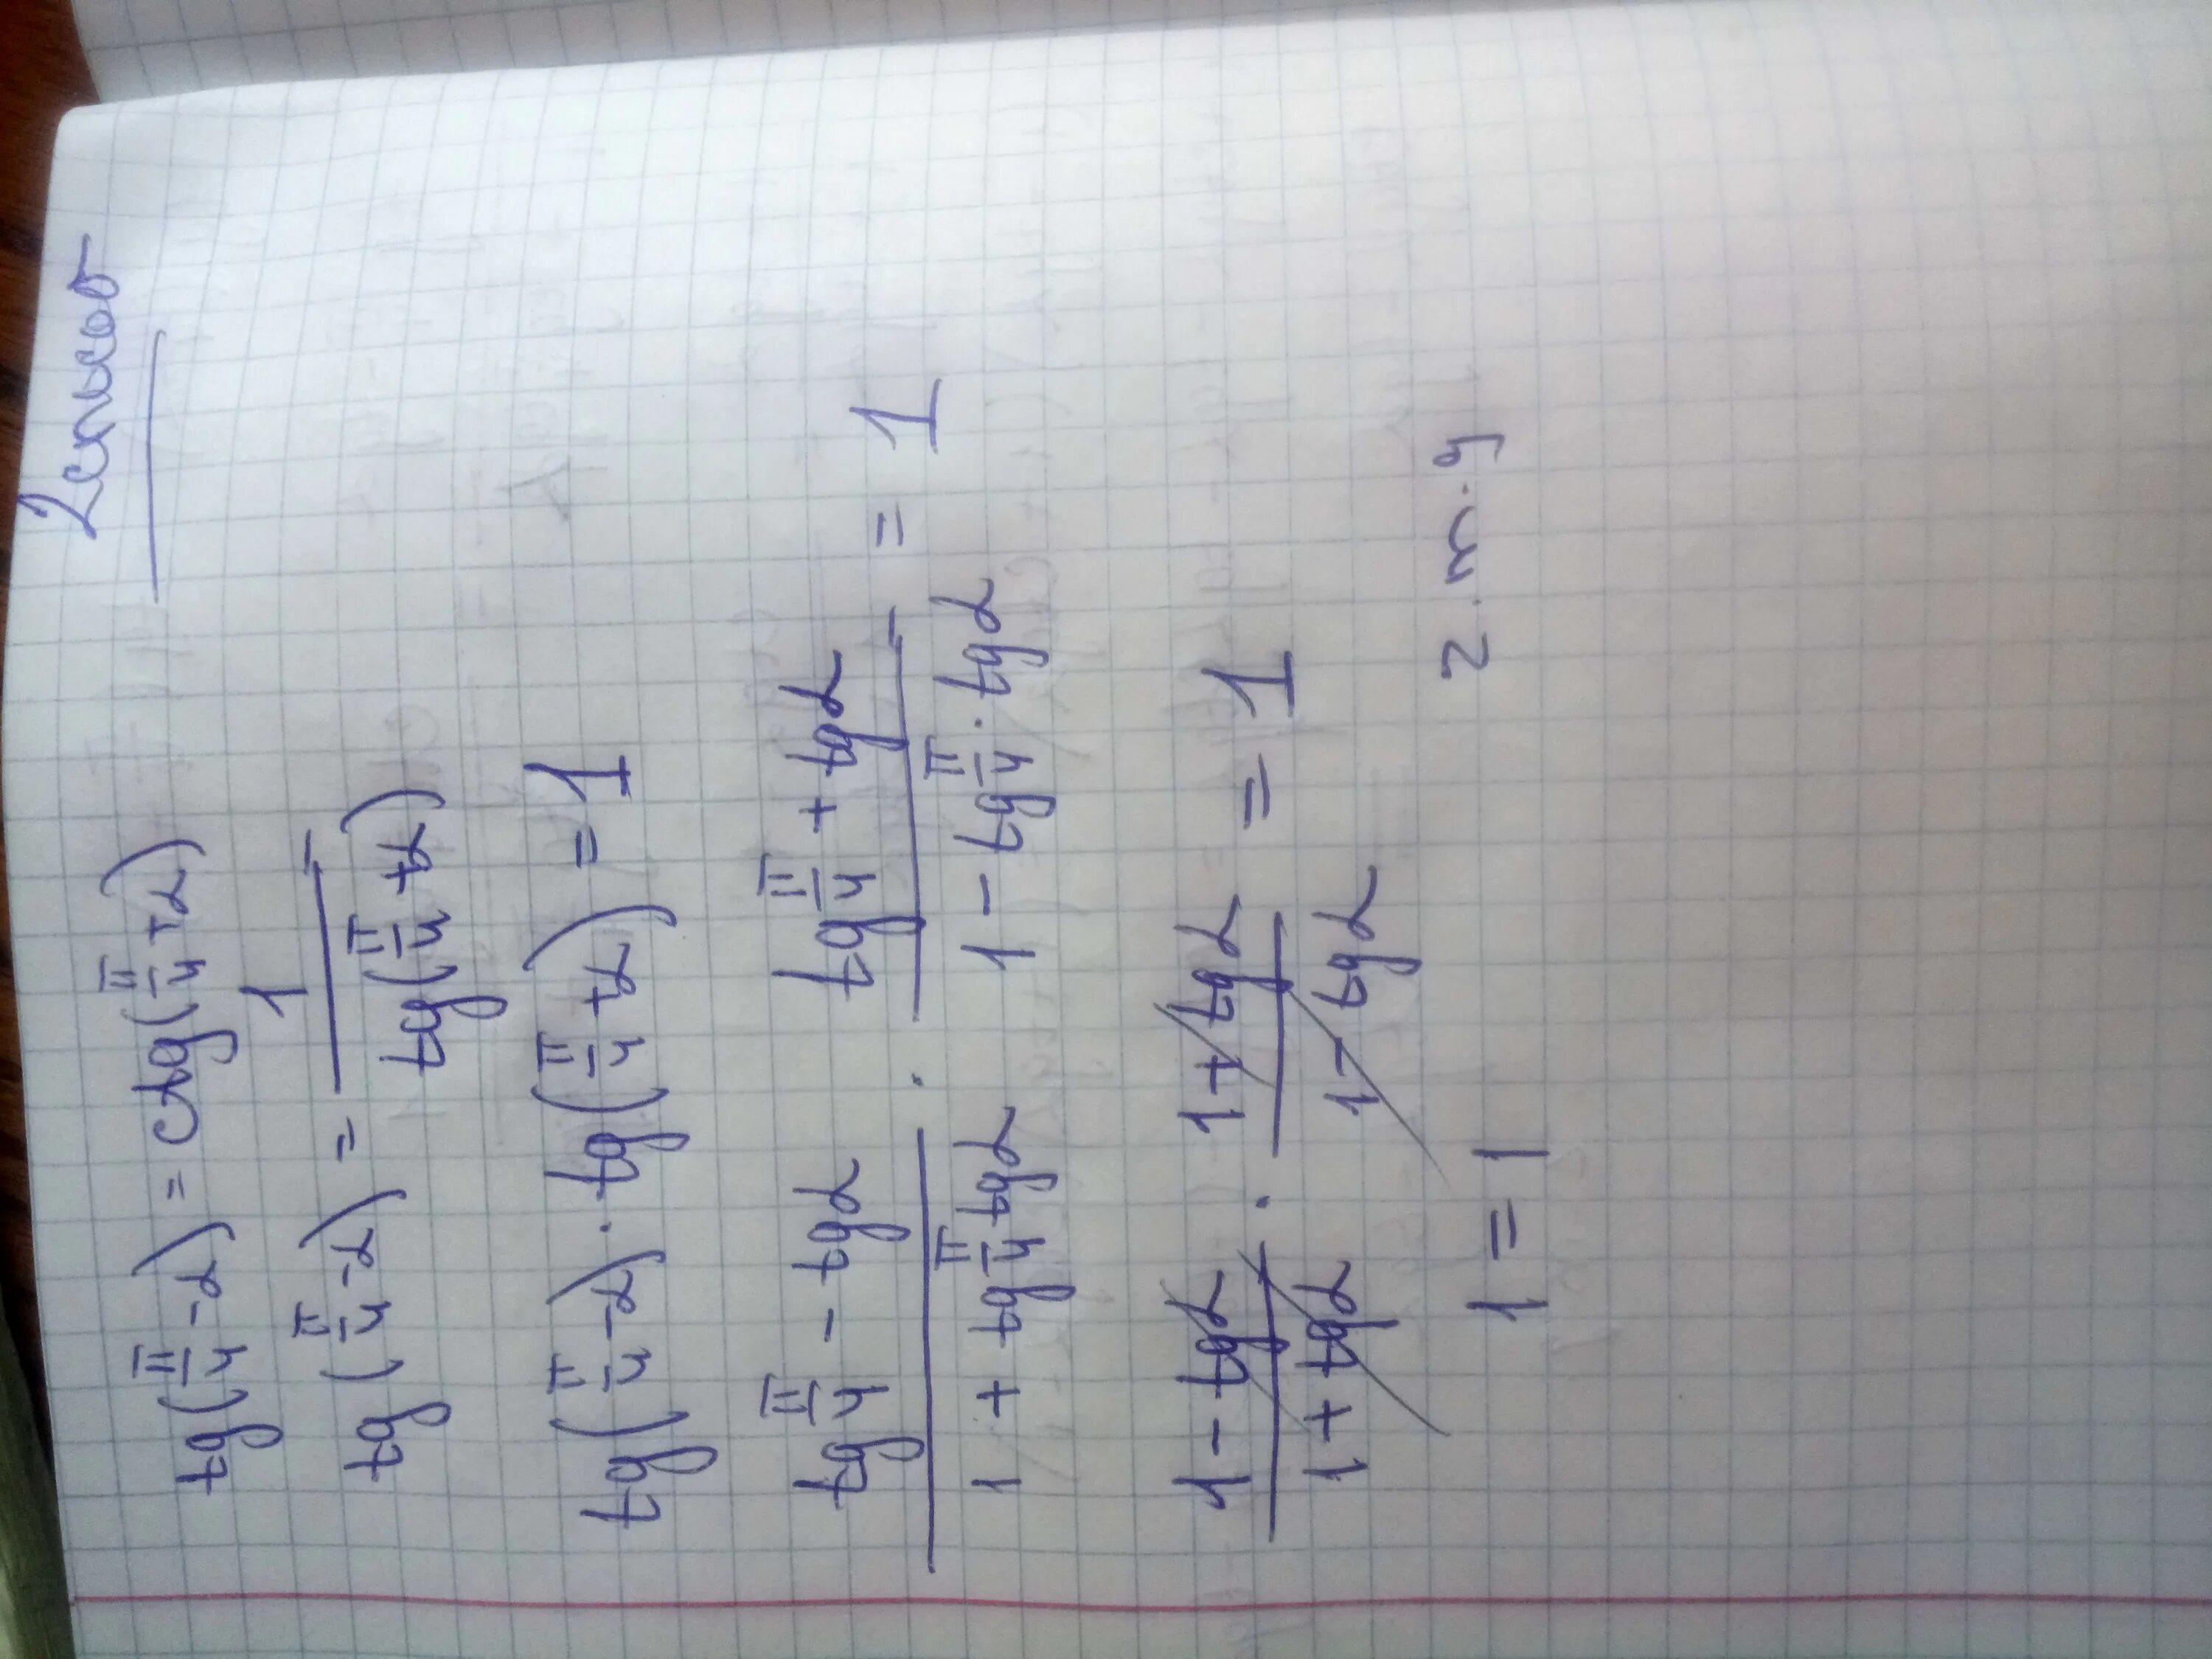 2 способ
tg(π/4 - α) = ctg(π/4 + α)
tg(π/4 - α) = 1/tg(π/4 + α)
tg(π/4 - α) · tg(π/4 + α) = 1
(tg π/4 - tg α)/(1 + tg π/4 tg α) · (tg π/4 + tg α)/(1 - tg π/4 · tg α) = 1
(1 - tg α)/(1 + tg α) · (1 + tg α)/(1 - tg α) = 1
1 = 1
z.m.g